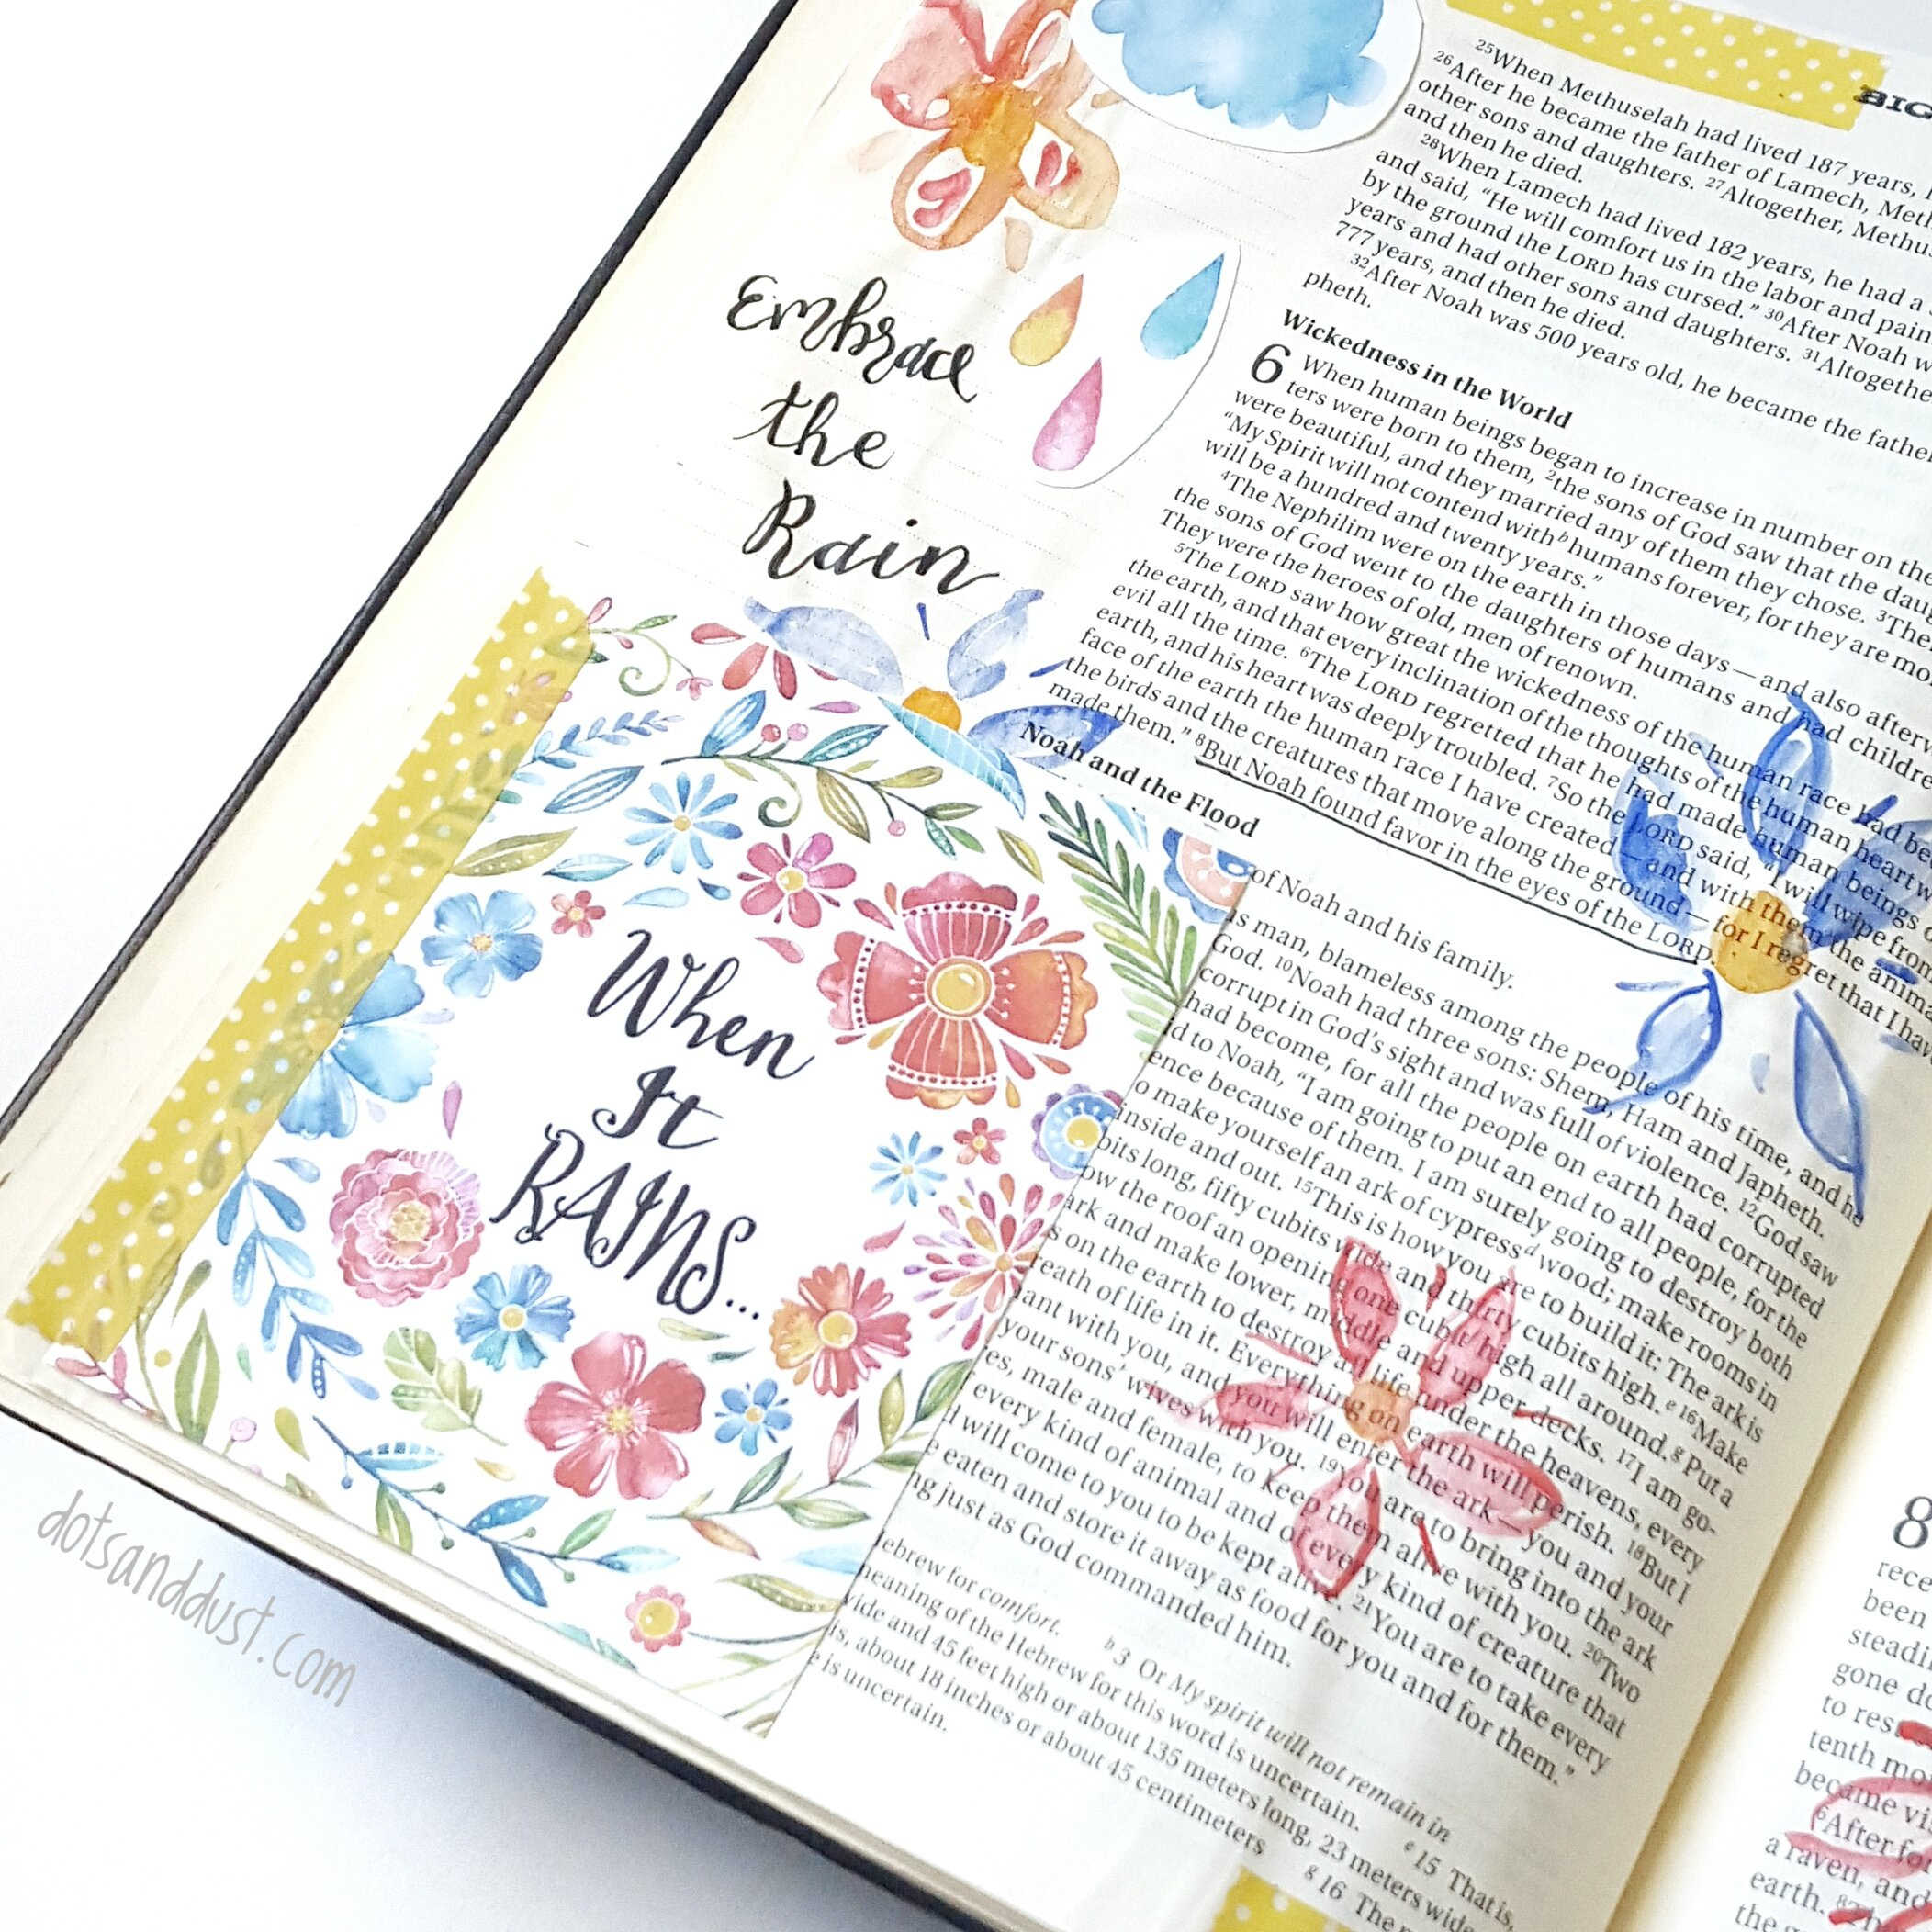 BIG
Embrace
the
Rain
When
It
RAINS...
dotsanddust.com
25When Methuselah had lived 187 years,
26After he became the father of Lamech, Meth
other sons and daughters. 27Altogether, Methus
and then he died.
28When Lamech had lived 182 years, he had a
and said, “He will comfort us in the labor and pain
by the ground the LORD has cursed.” 30After Noah w
years and had other sons and daughters. 31Altogethe
777 years, and then he died.
32After Noah was 500 years old, he became the father
pheth.
Wickedness in the World
6 When human beings began to increase in number on the
ters were born to them, 2the sons of God saw that the dau
were beautiful, and they married any of them they chose. 3The
“My Spirit will not contend with b humans forever, for they are mo
will be a hundred and twenty years.”
4The Nephilim were on the earth in those days—and also afterw
the sons of God went to the daughters of humans and had childre
They were the heroes of old, men of renown.
5The LORD saw how great the wickedness of the human race had be
the earth, and that every inclination of the thoughts of the human heart w
evil all the time. 6The LORD regretted that he had made human beings o
earth, and his heart was deeply troubled. 7So the LORD said, “I will wipe from
face of the earth the human race I have created—and with them the anima
the birds and the creatures that move along the ground—for I regret that I hav
made them.” 8But Noah found favor in the eyes of the LORD.
Noah and the Flood
of Noah and his family.
s man, blameless among the people of his time, and he
God. 10Noah had three sons: Shem, Ham and Japheth.
corrupt in God’s sight and was full of violence. 12God saw
had become, for all the people on earth had corrupted
d to Noah, “I am going to put an end to all people, for the
ence because of them. I am surely going to destroy both
o make yourself an ark of cypress d wood; make rooms in
inside and out. 15This is how you are to build it: The ark is
bits long, fifty cubits wide and thirty cubits high. e 16Make
ow the roof an opening one cubit high all around. g Put a
ark and make lower, middle and upper decks. 17I am go-
s on the earth to destroy all life under the heavens, every
reath of life in it. Everything on earth will perish. 18But I
ant with you, and you will enter the ark—you and your
your sons’ wives with you. 19You are to bring into the ark
es, male and female, to keep them alive with you. 20Two
every kind of animal and of every kind of creature that
d will come to you to be kept alive. 21You are to take every
e eaten and store it away as food for you and for them.”
ng just as God commanded him.
ebrew for comfort. b 3 Or My spirit will not remain in
meaning of the Hebrew for this word is uncertain. e 15 That is,
vide and 45 feet high or about 135 meters long, 23 meters wide
is, about 18 inches or about 45 centimeters g 16 The
e is uncertain.
8
rece
been
steadi
gone do
to res
tenth mo
became vis
6After for
a raven, and
earth.
the